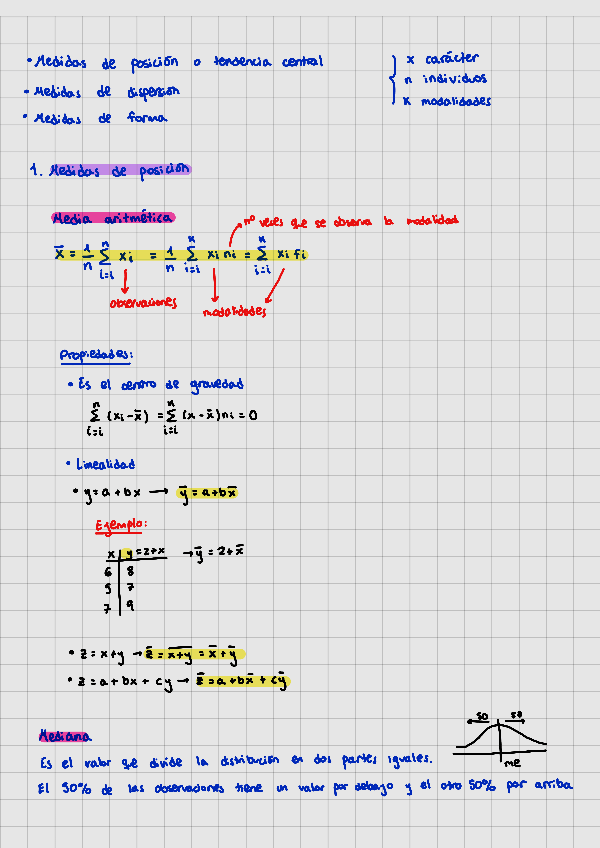 • Medidas de posición o tendencia central
x carácter
n individuos
• Medidas de dispersión
K modalidades
• Medidas de forma
1. Medidas de posición
Media aritmética
nº veces que se observa la modalidad
x̄ = 1/n ∑ᵢ₌ᵢⁿ xi = 1/n ∑ᵢ₌ᵢᴷ xi ni = ∑ᵢ₌ᵢᴷ xi fi
observaciones
modalidades
Propiedades:
• Es el centro de gravedad
∑ᵢ₌ᵢⁿ (xi - x̄) = ∑ᵢ₌ᵢᴷ (x - x̄) ni = 0
• Linealidad
• y = a + bx → ȳ = a + bx̄
Ejemplo:
x | y = 2 + x → ȳ = 2 + x̄
6 | 8
5 | 7
7 | 9
• z = x + y → z̄ = x̄+̄ȳ = x̄ + ȳ
• z = a + bx + cy → z̄ = a + bx̄ + cȳ
50 50
Mediana
me
Es el valor que divide la distribución en dos partes iguales.
El 50% de las observaciones tiene un valor por debajo y el otro 50% por arriba